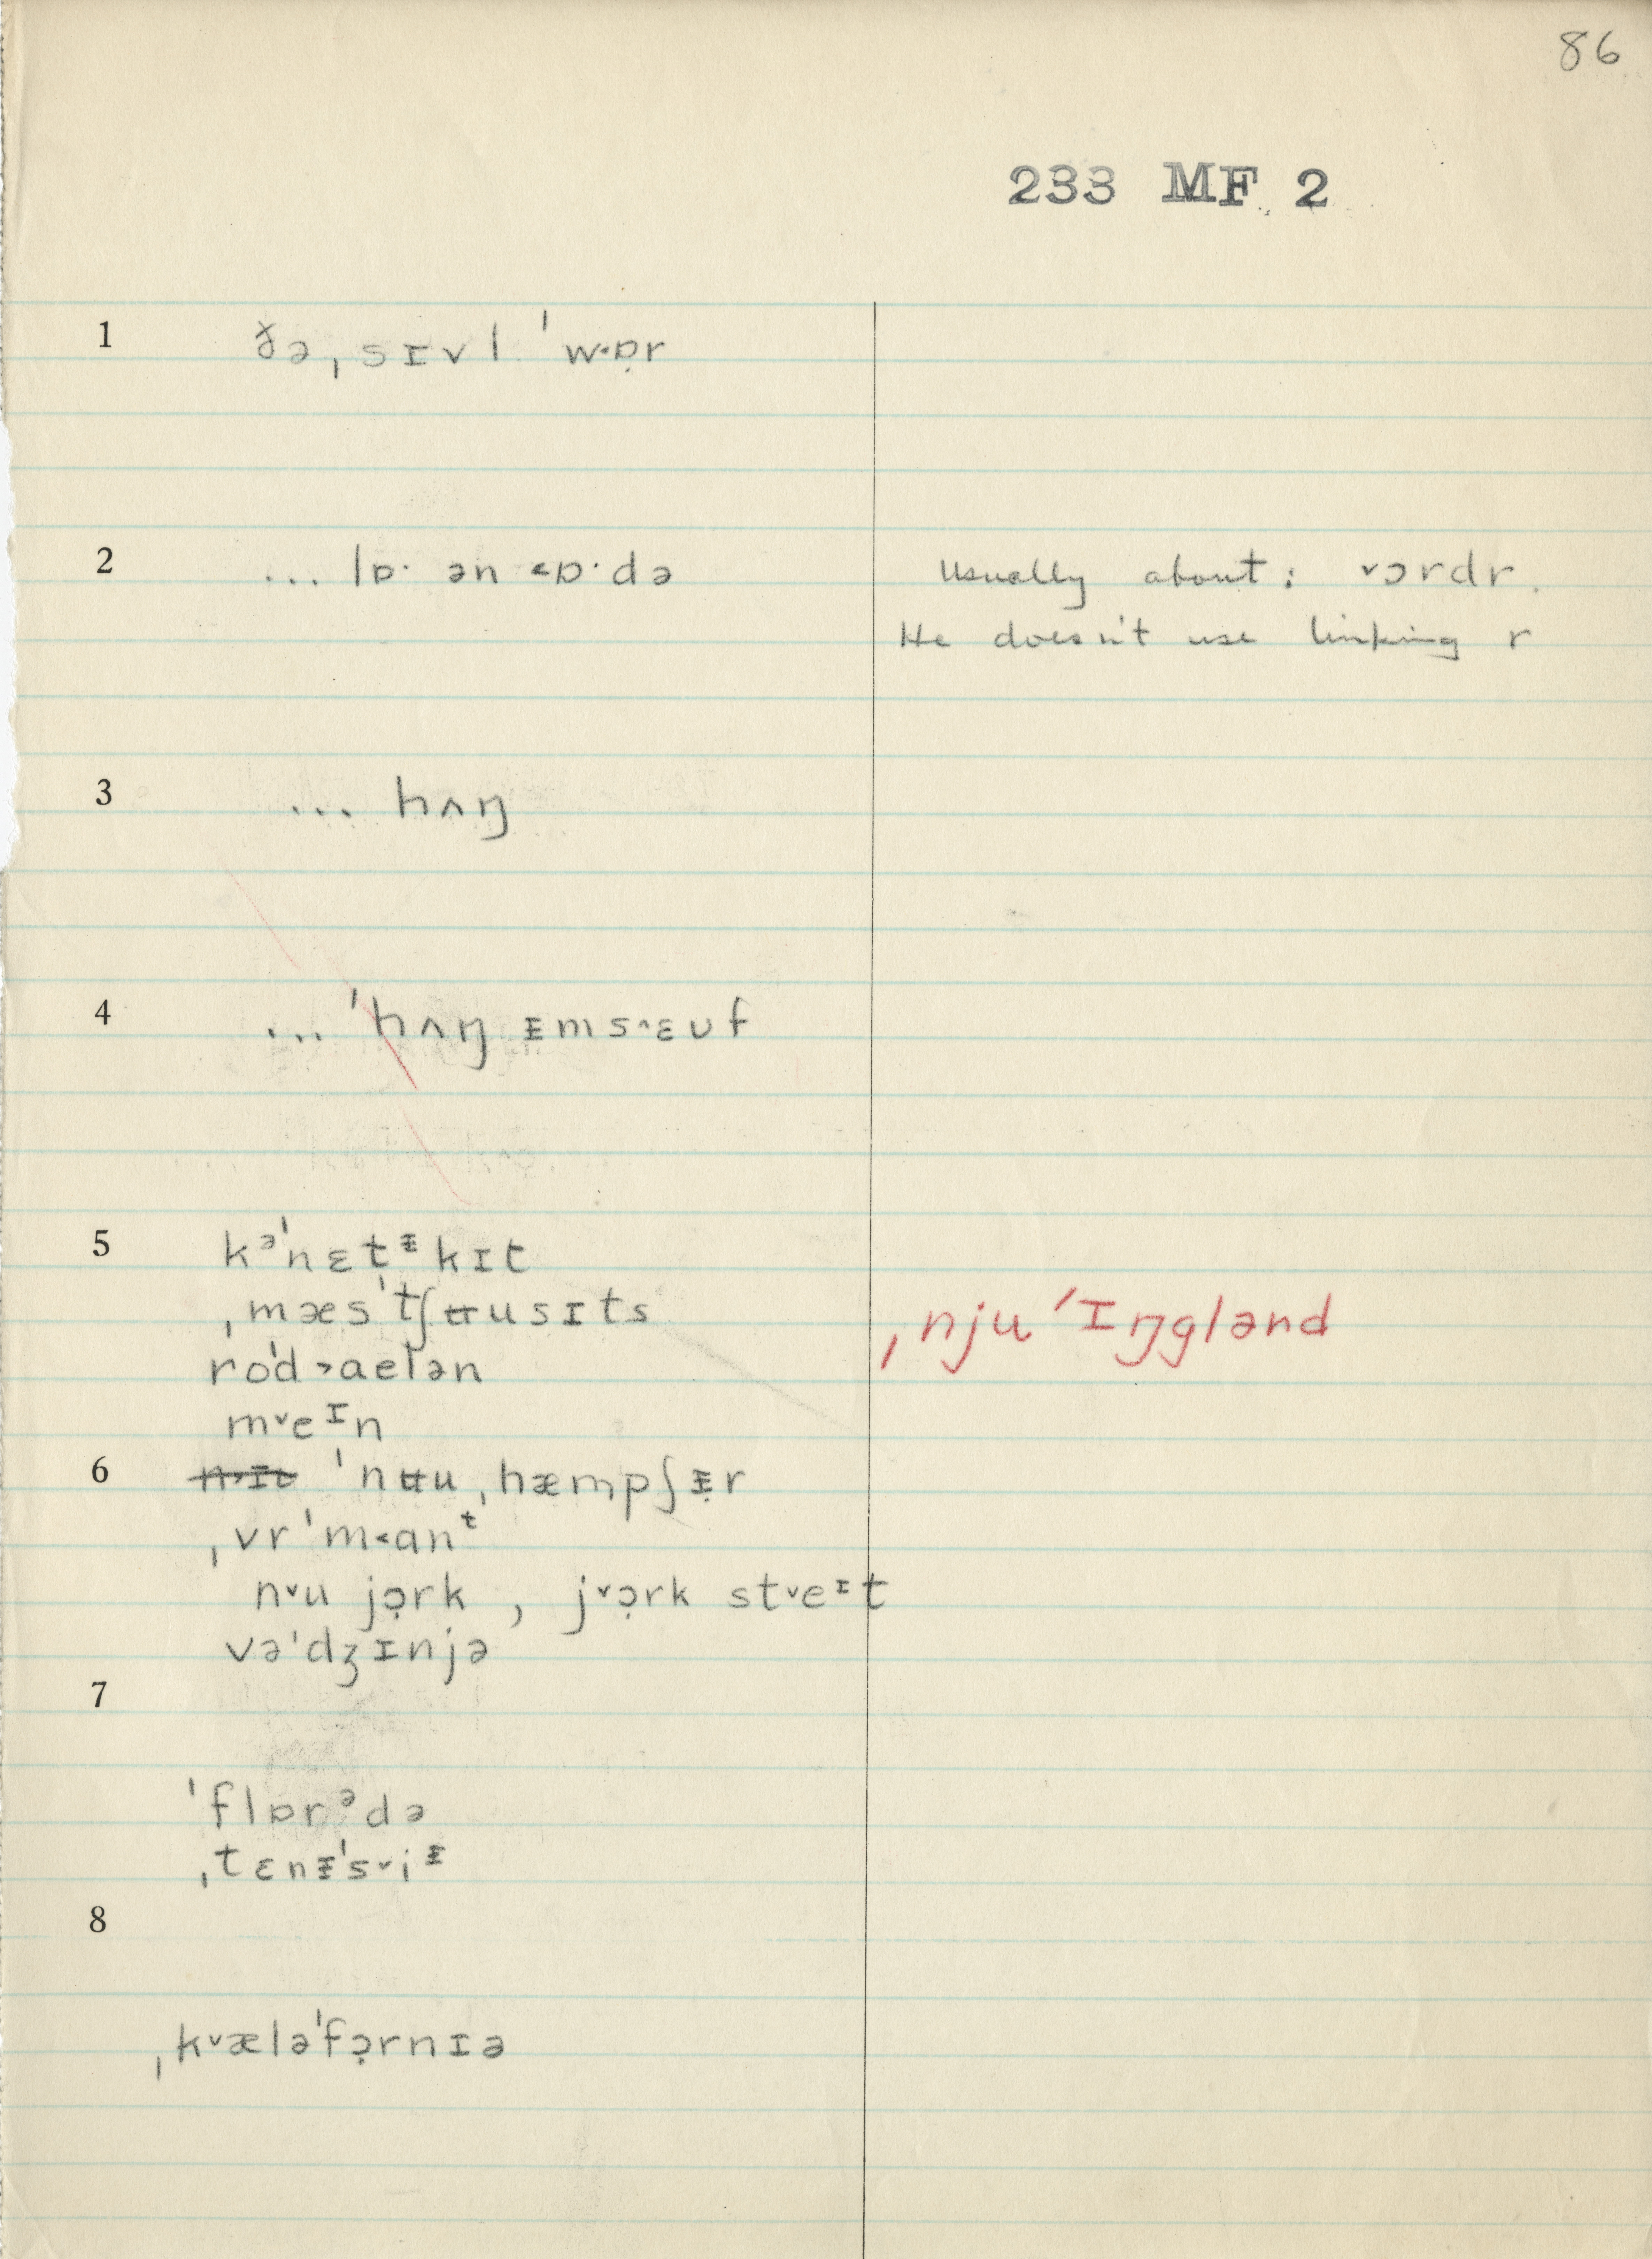 86
233 MF 2
1 ðə ˌsɪvl ˈw˂ɒ̣r
2 ... lɒ· ən ˂ɒ·də Usually about: ˅ɔrdr.
He doesn't use linking r
3 ... hʌŋ
4 ... ˈhʌŋ ᵻms˄ɛʊf
5 kᵊˈnɛtᵻkɪt
ˌmæsˈtʃʉusɪts ˌnju ˈɪŋglənd
roˈd˃aelən
m˅eᶦn
6 ˈnʉu ˌhæmpʃᵻ̣r
ˌvrˈm˂anᵗ
n˅u jɔ̣rk , j˅ɔ̣rk st˅eᶦt
vəˈdʒɪnjə
7
ˈflɒrᵊdə
ˌtɛnᵻˈs˅iᵻ
8
ˌk˅æləˈfɔ̣rnɪə